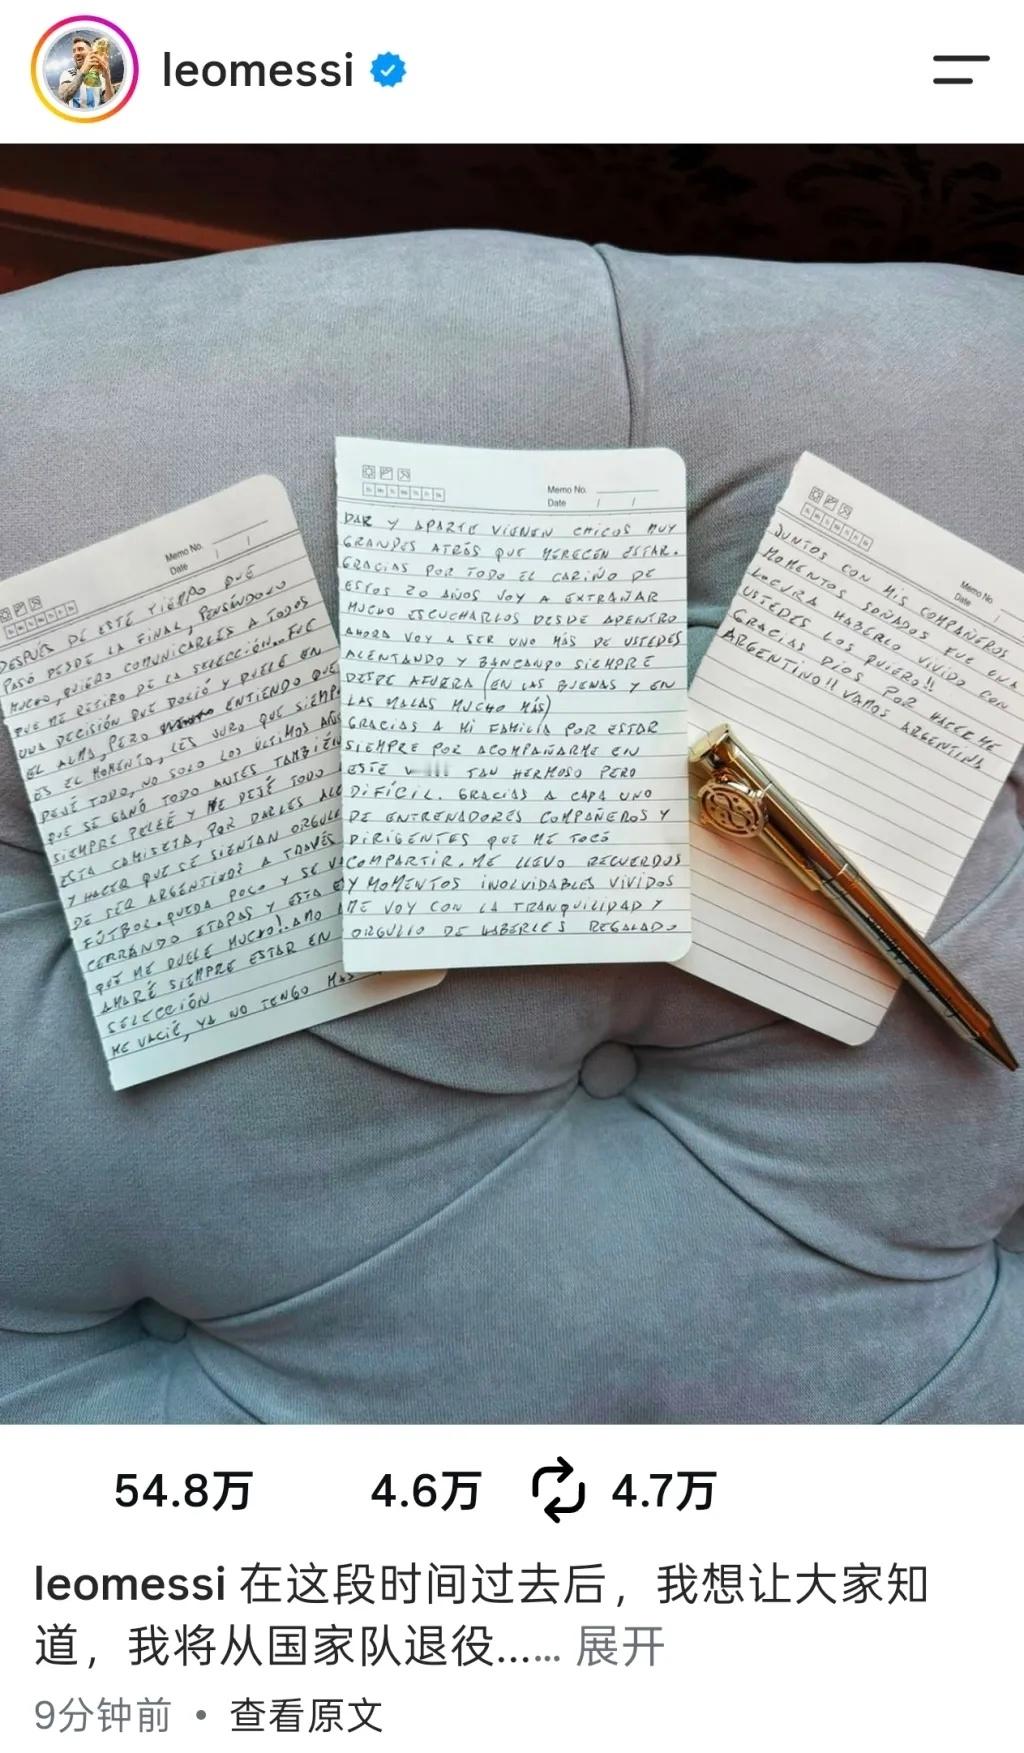 leomessi
Memo No.
Date / /
DESPUÉS DE ESTE TIEMPO QUE
PASÓ DESDE LA FINAL, PENSÁNDOLO
MUCHO, QUIERO COMUNICARLES A TODOS
QUE ME RETIRO DE LA SELECCIÓN... FUE
UNA DECISIÓN QUE DOLIÓ Y DUELE EN
EL ALMA, PERO ENTIENDO QUE
ES EL MOMENTO, LES JURO QUE SIEMP
DEJÉ TODO, NO SOLO LOS ÚLTIMOS AÑOS
QUE SE GANÓ TODO ANTES TAMBIÉN
SIEMPRE PELEÉ Y ME DEJÉ TODO
ESTA CAMISETA, POR DARLES ALE
Y HACER QUE SE SIENTAN ORGULL
DE SER ARGENTINOS A TRAVÉS
FÚTBOL. QUEDA POCO Y SE V
CERRANDO ETAPAS Y ESTA E
QUE ME DUELE MUCHO!. AMO
AMARÉ SIEMPRE ESTAR EN
SELECCIÓN
ME VACIÉ, YA NO TENGO MAS
Memo No.
Date / /
DAR Y APARTE VIENEN CHICOS MUY
GRANDES ATRÁS QUE MERECEN ESTAR.
GRACIAS POR TODO EL CARIÑO DE
ESTOS 20 AÑOS VOY A EXTRAÑAR
MUCHO ESCUCHARLOS DESDE ADENTRO
AHORA VOY A SER UNO MÁS DE USTEDES
ALENTANDO Y BANCANDO SIEMPRE
DESDE AFUERA (EN LAS BUENAS Y EN
LAS MALAS MUCHO MÁS)
GRACIAS A MI FAMILIA POR ESTAR
SIEMPRE POR ACOMPAÑARME EN
ESTE TAN HERMOSO PERO
DIFÍCIL. GRACIAS A CADA UNO
DE ENTRENADORES COMPAÑEROS Y
DIRIGENTES QUE ME TOCÓ
COMPARTIR. ME LLEVO RECUERDOS
Y MOMENTOS INOLVIDABLES VIVIDOS
ME VOY CON LA TRANQUILIDAD Y
ORGULLO DE HABERLES REGALADO
Memo No.
Date /
JUNTOS CON MIS COMPAÑEROS
MOMENTOS SOÑADOS FUE UNA
LOCURA HABERLO VIVIDO CON
USTEDES LOS QUIERO!!
GRACIAS DIOS POR HACERME
ARGENTINO!! VAMOS ARGENTINA
54.8万 4.6万 4.7万
leomessi 在这段时间过去后，我想让大家知
道，我将从国家队退役...... 展开
9分钟前 • 查看原文